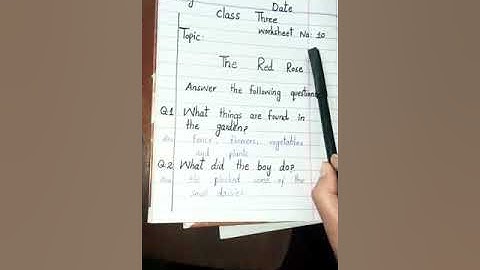 Date
Class Three
Worksheet No: 10
Topic:
The Red Rose
Answer the following question
Q.1 What things are found in
the garden?
Ans flowers, vegetables
and plants
Q.2 What did the boy do?
Ans He plucked some of the
small daisies